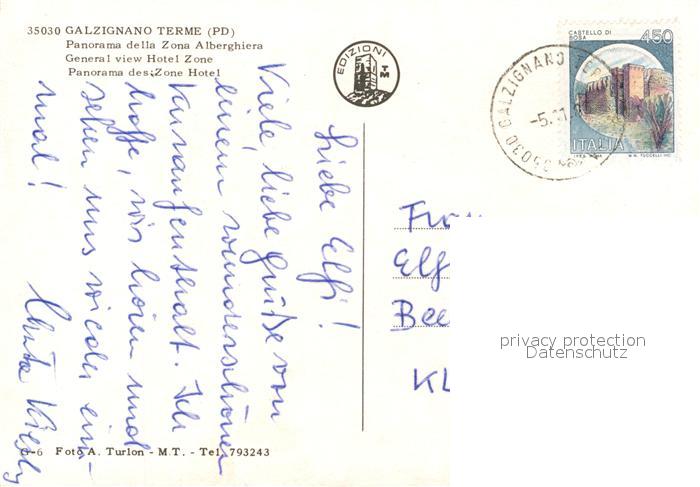 35030 GALZIGNANO TERME (PD)
Panorama della Zona Alberghiera
General view Hotel Zone
Panorama des Zone Hotel
EDIZIONI
TM
CASTELLO DI
ROSA
450
ITALIA
35030 GALZIGNANO
-5.
Liebe Elfi!
Viele, liebe Grüße von
einem wunderschönen
Kuraufenthalt. Ich
hoffe, wir hören und
sehen uns wieder ein-
mal!
Fra
Elf
Bee
KL
privacy protection
Datenschutz
G-6 Foto A. Turlon - M.T. - Tel. 793243